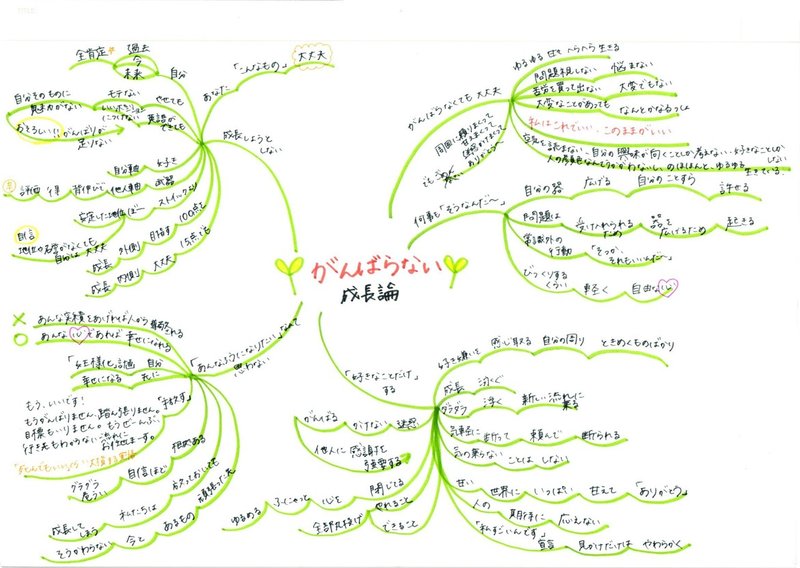 がんばらない
成長論
成長しようと
しない
あなた
「こんなもの」
大丈夫
自分
過去
今
未来
全肯定
やせても
モテない
自分そのものに
魅力がない
英語が
できても
いいポジションに
つけない
おそろしい!!がんばりが
足りない
好き
自分軸
武器
他人軸
背伸びして
評価
ストイックに
安定した地位ば〜
100点を
目指す
外側
成長
15点でも
大丈夫
内側
成長
助言
地位や名誉がなくても
自分は大丈夫
がんばらなくても大丈夫
ゆるゆる
甘えて
へらへら
生きる
問題視しない
悩まない
苦労を買って出ない
大変でもない
大変なことがあっても
なんとかなるっしょ
私はこれでいい、このままがいい
空気を読まない、自分の興味が向くことしか考えない、好きなことしか
しない
人の顔色なんてうかがわない、のほほんと、ゆるゆる
生きている
周囲に頼りまくって
甘えまくって
迷惑かけまくって
ありがとう〜
何事も「そうなんだ〜」
自分の器
広げる
自分のことすら
許せる
問題は
受け入れられる
ため
器を
広げるため
起きる
常識外の
行動
「そっか、
それもいいんだ〜」
びっくりする
くらい
軽く
自由な心
「あんなようになりたい」なんて
思わない
あんな実績をあげれば人から尊敬される
あんな心であれば幸せになれる
自分
「女王様化」計画
先に
幸せになる
「手放す」
もう、いいです!
もうがんばりません。踏ん張りません。
目標もいりません。もうぜーんぶ、
行き先もわからない流れに
お任せまーす。
根拠ある
自信ほど
グラグラ
危うい
放っておいても
私たちは
成長して
しまう
頑張った先
あるもの
今と
そうかわらない
「好きなことだけ」
する
好き嫌いを
感じ取る
自分の周り
ときめくものばかり
成長
泳ぐ
ダラダラ
浮く
新しい流れに
乗る
気軽に
断って
頼んで
断られる
気の乗らない
ことは
しない
甘い
世界に
いっぱい
甘えて
「ありがとう」
人の
期待に
応えない
「私すごいんです」
宣言
見かけだけは
やわらかく
迷惑
かけない
がんばる
他人に
感謝を
強要する
閉じてる
心を
ふにゃっと
ゆるめる
やれること
できること
全部丸投げ